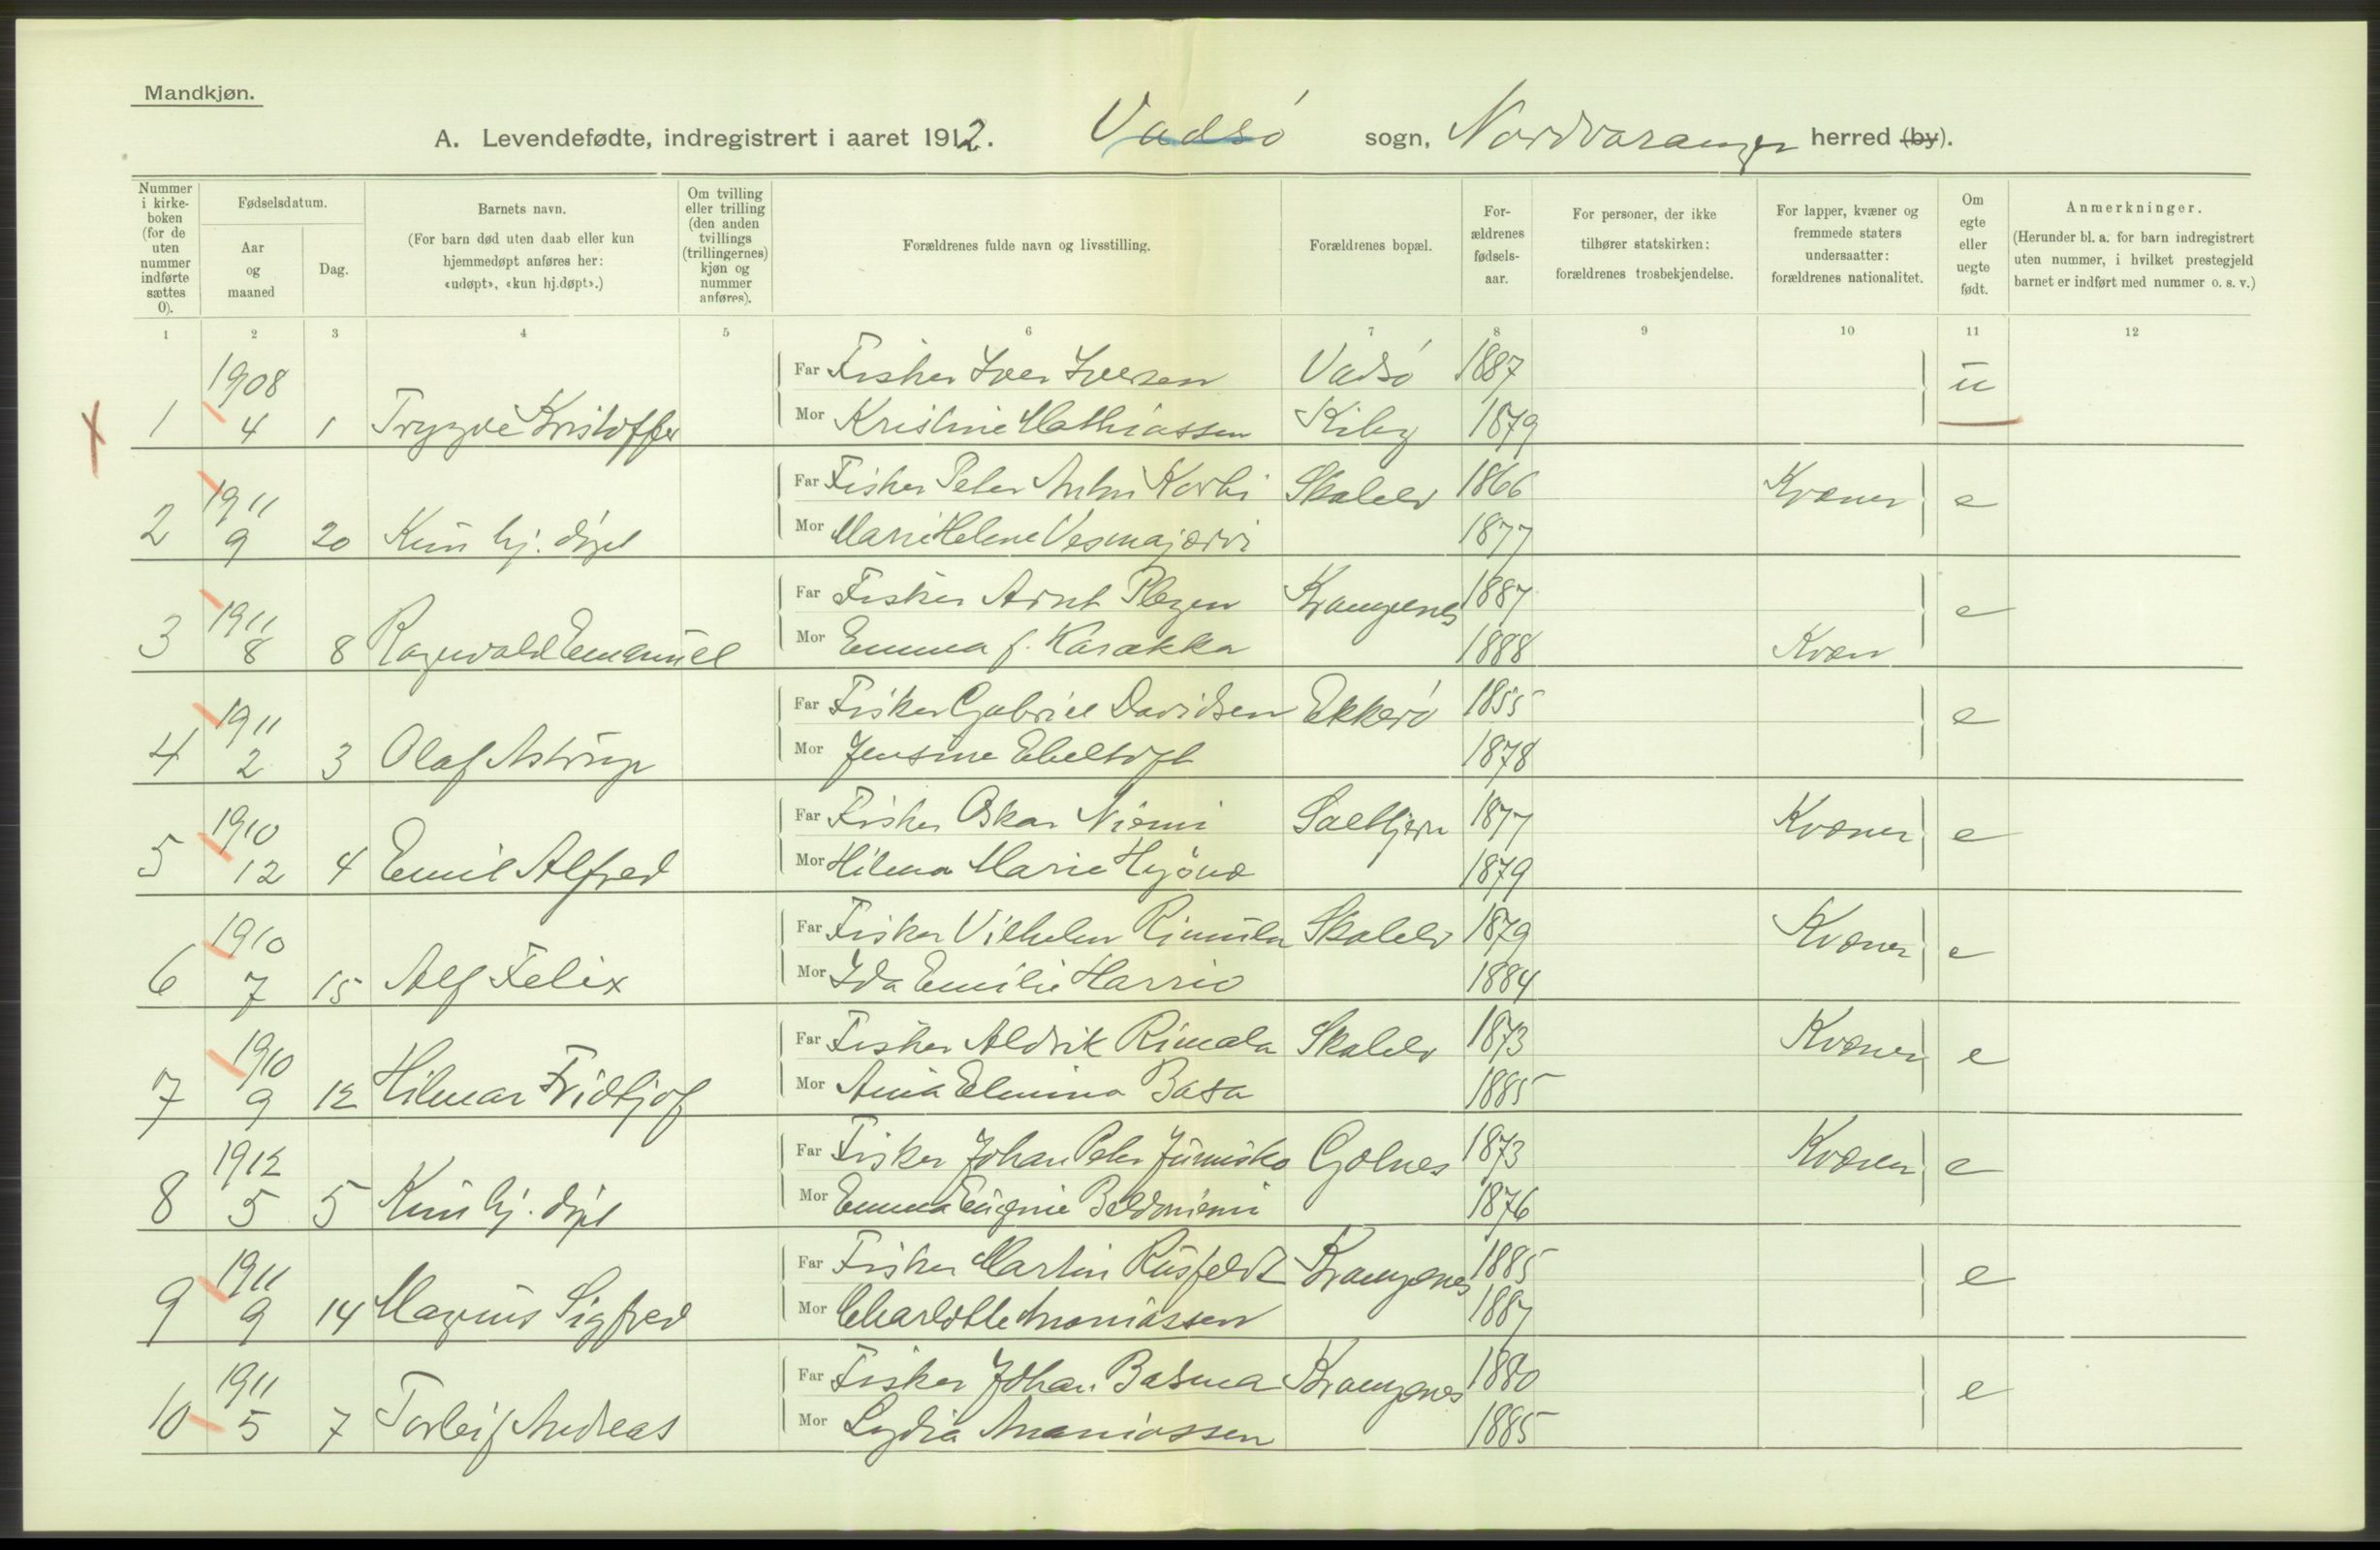 Mandkjøn.
A. Levendefødte, indregistrert i aaret 1912. Vadsø sogn, Nordvaranger herred (by).
Nummer i kirkeboken (for de uten nummer indførte sættes 0).
Fødselsdatum.
Aar og maaned
Dag.
Barnets navn.
(For barn død uten daab eller kun hjemmedøpt anføres her: «udøpt», «kun hj.døpt».)
Om tvilling eller trilling (den anden tvillings (trillingernes) kjøn og nummer anføres).
Forældrenes fulde navn og livsstilling.
Forældrenes bopæl.
Forældrenes fødselsaar.
For personer, der ikke tilhører statskirken: forældrenes trosbekjendelse.
For lapper, kvæner og fremmede staters undersaatter: forældrenes nationalitet.
Om egte eller uegte født.
Anmerkninger.
(Herunder bl. a. for barn indregistrert uten nummer, i hvilket prestegjeld barnet er indført med nummer o. s. v.)
1 2 3 4 5 6 7 8 9 10 11 12
1908 Far Fisker Iver Iversen Vadsø 1887 u
1 4 1 Trygve Kristoffer Mor Kristine Mathiassen Kiby 1879
1911 Far Fisker Peter Anton Korbi Skalelv 1866 Kvæner e
2 9 20 Kun hj. døpt Mor Marie Helene Vesmajærvi 1877
1911 Far Fisker Arnt Krampenes 1887 e
3 8 8 Ragnvald Emanuel Mor Emma f. Karakka 1888 Kvæn
1911 Far Fisker Gabriel Davidsen Ekkerø 1855 e
4 2 3 Olaf Astrup Mor Jensine Ebeltoft 1878
1910 Far Fisker Oskar Niemi Saltjern 1877 Kvæner e
5 12 4 Emil Alfred Mor Hilma Marie 1879
1910 Far Fisker Vilhelm Rimula Skalelv 1879 Kvæner e
6 7 15 Alf Felix Mor Ida Emilie Harrio 1884
1910 Far Fisker Aldrik Rimala Skalelv 1873 Kvæner e
7 9 12 Hilmar Fridtjof Mor Anna Elmina Basa 1885
1912 Far Fisker Johan Peter Junnisko Golnes 1873 Kvæner e
8 5 5 Kun hj. døpt Mor Emma Eugenie Beldoniemi 1876
1911 Far Fisker Martin Rusfeldt Krampenes 1885 e
9 9 14 Magnus Sigfred Mor Charlotte Ananiassen 1887
1911 Far Fisker Johan Basma Krampenes 1880 e
10 5 7 Torleif Andreas Mor Lydia Ananiassen 1885